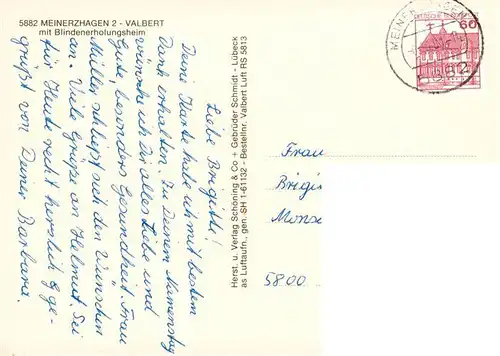 5882 MEINERZHAGEN 2 - VALBERT
mit Blindenerholungsheim
Liebe Brigitte!
Deine Karte habe ich mit bestem
Dank erhalten. Zu Deinem Namenstag
wünsche ich Dir alles Liebe und
Gute, besonders Gesundheit. Frau
Müller schließt sich den Wünschen
an. Viele Grüße an Helmut. Sei
für Heute recht herzlich ge-
grüßt von Deiner Barbara.
Herst. u. Verlag Schöning & Co + Gebrüder Schmidt - Lübeck
as Luftaufn., gen. SH 1-61132 - Bestellnr. Valbert Luft RS 5813
MEINERZHAGEN
60
2
Frau
Brigi
5800